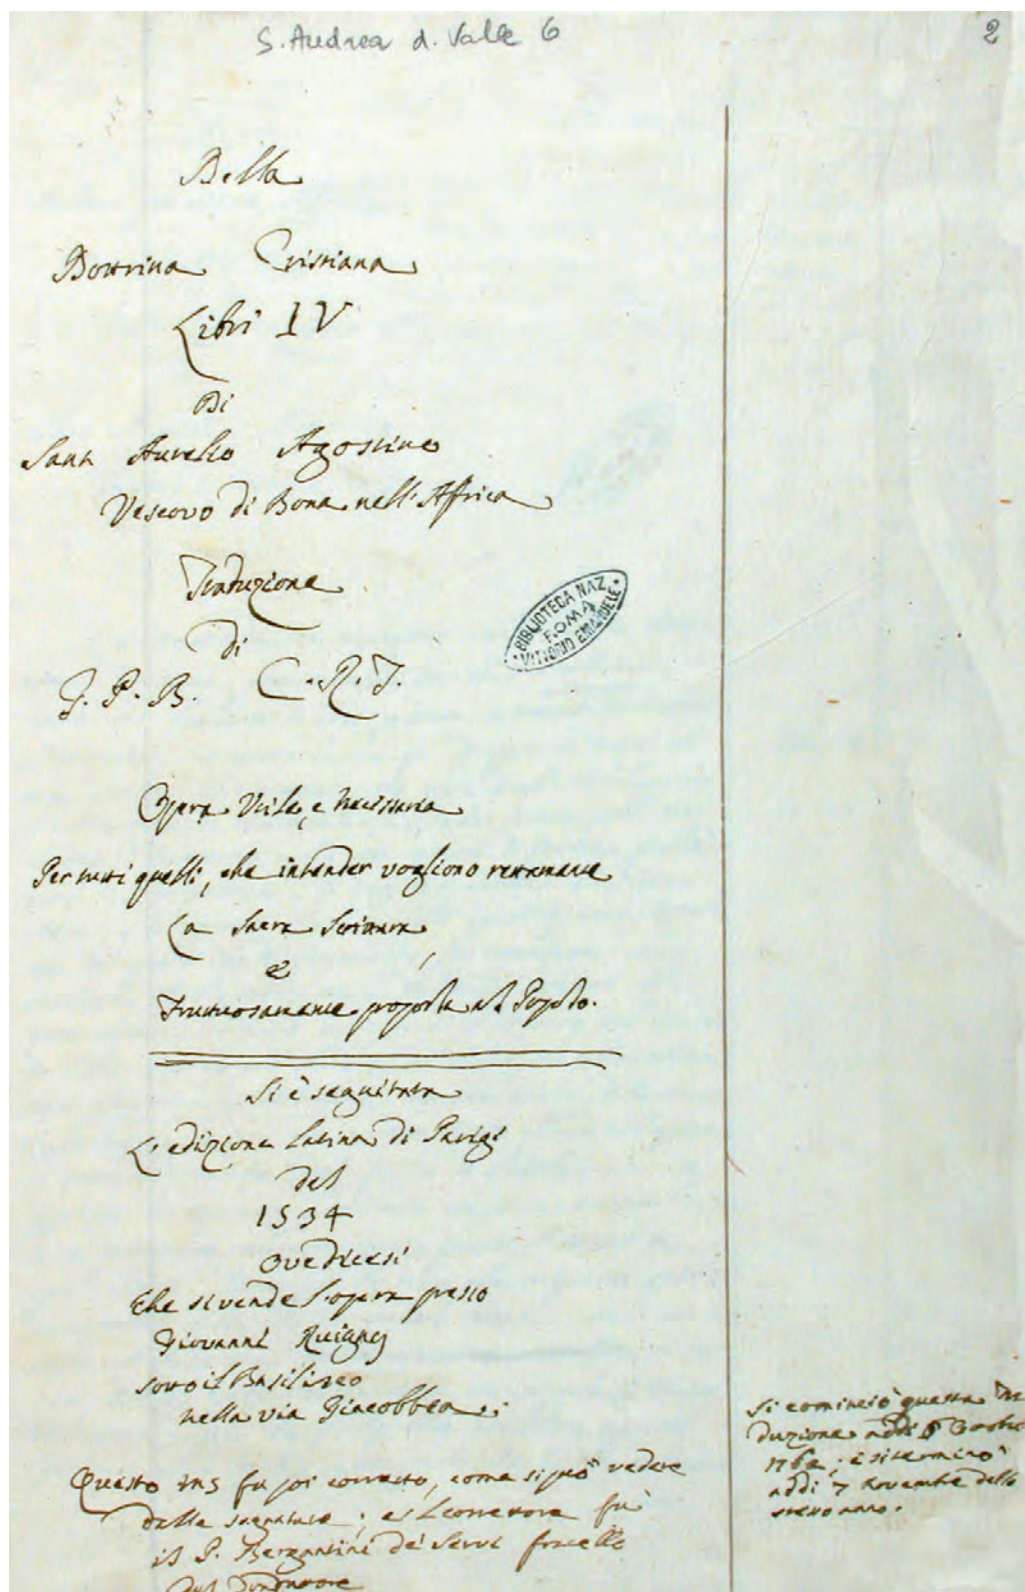 S. Andrea d. Valle 6
2
Della
Dottrina Cristiana
Libri IV
Di
Sant Aurelio Agostino
Vescovo di Bona nell'Affrica
Traduzione
di
G. P. B. C. R. T.
BIBLIOTECA NAZ.
ROMA
VITTORIO EMANUELE
Opera Utile, e necessaria
Per tutti quelli, che intender vogliono rettamente
La Sacra Scrittura,
e
Fruttuosamente proporla al Popolo.
Si è seguitata
L'edizione latina di Parigi
del
1534
ove dicesi
Che si vende l'opera presso
Giovanni
sotto il Basilisco
nella via Giacobbea.;
Questo ms fu poi corretto, come si può vedere
dalle segnature; e il correttore fu
il P. Bergantini de' Servi fratello
del Traduttore
Si cominciò questa Tra
duzione addi 6 Ottobre
; e si terminò
addi 7 Novembre dello
stesso anno.